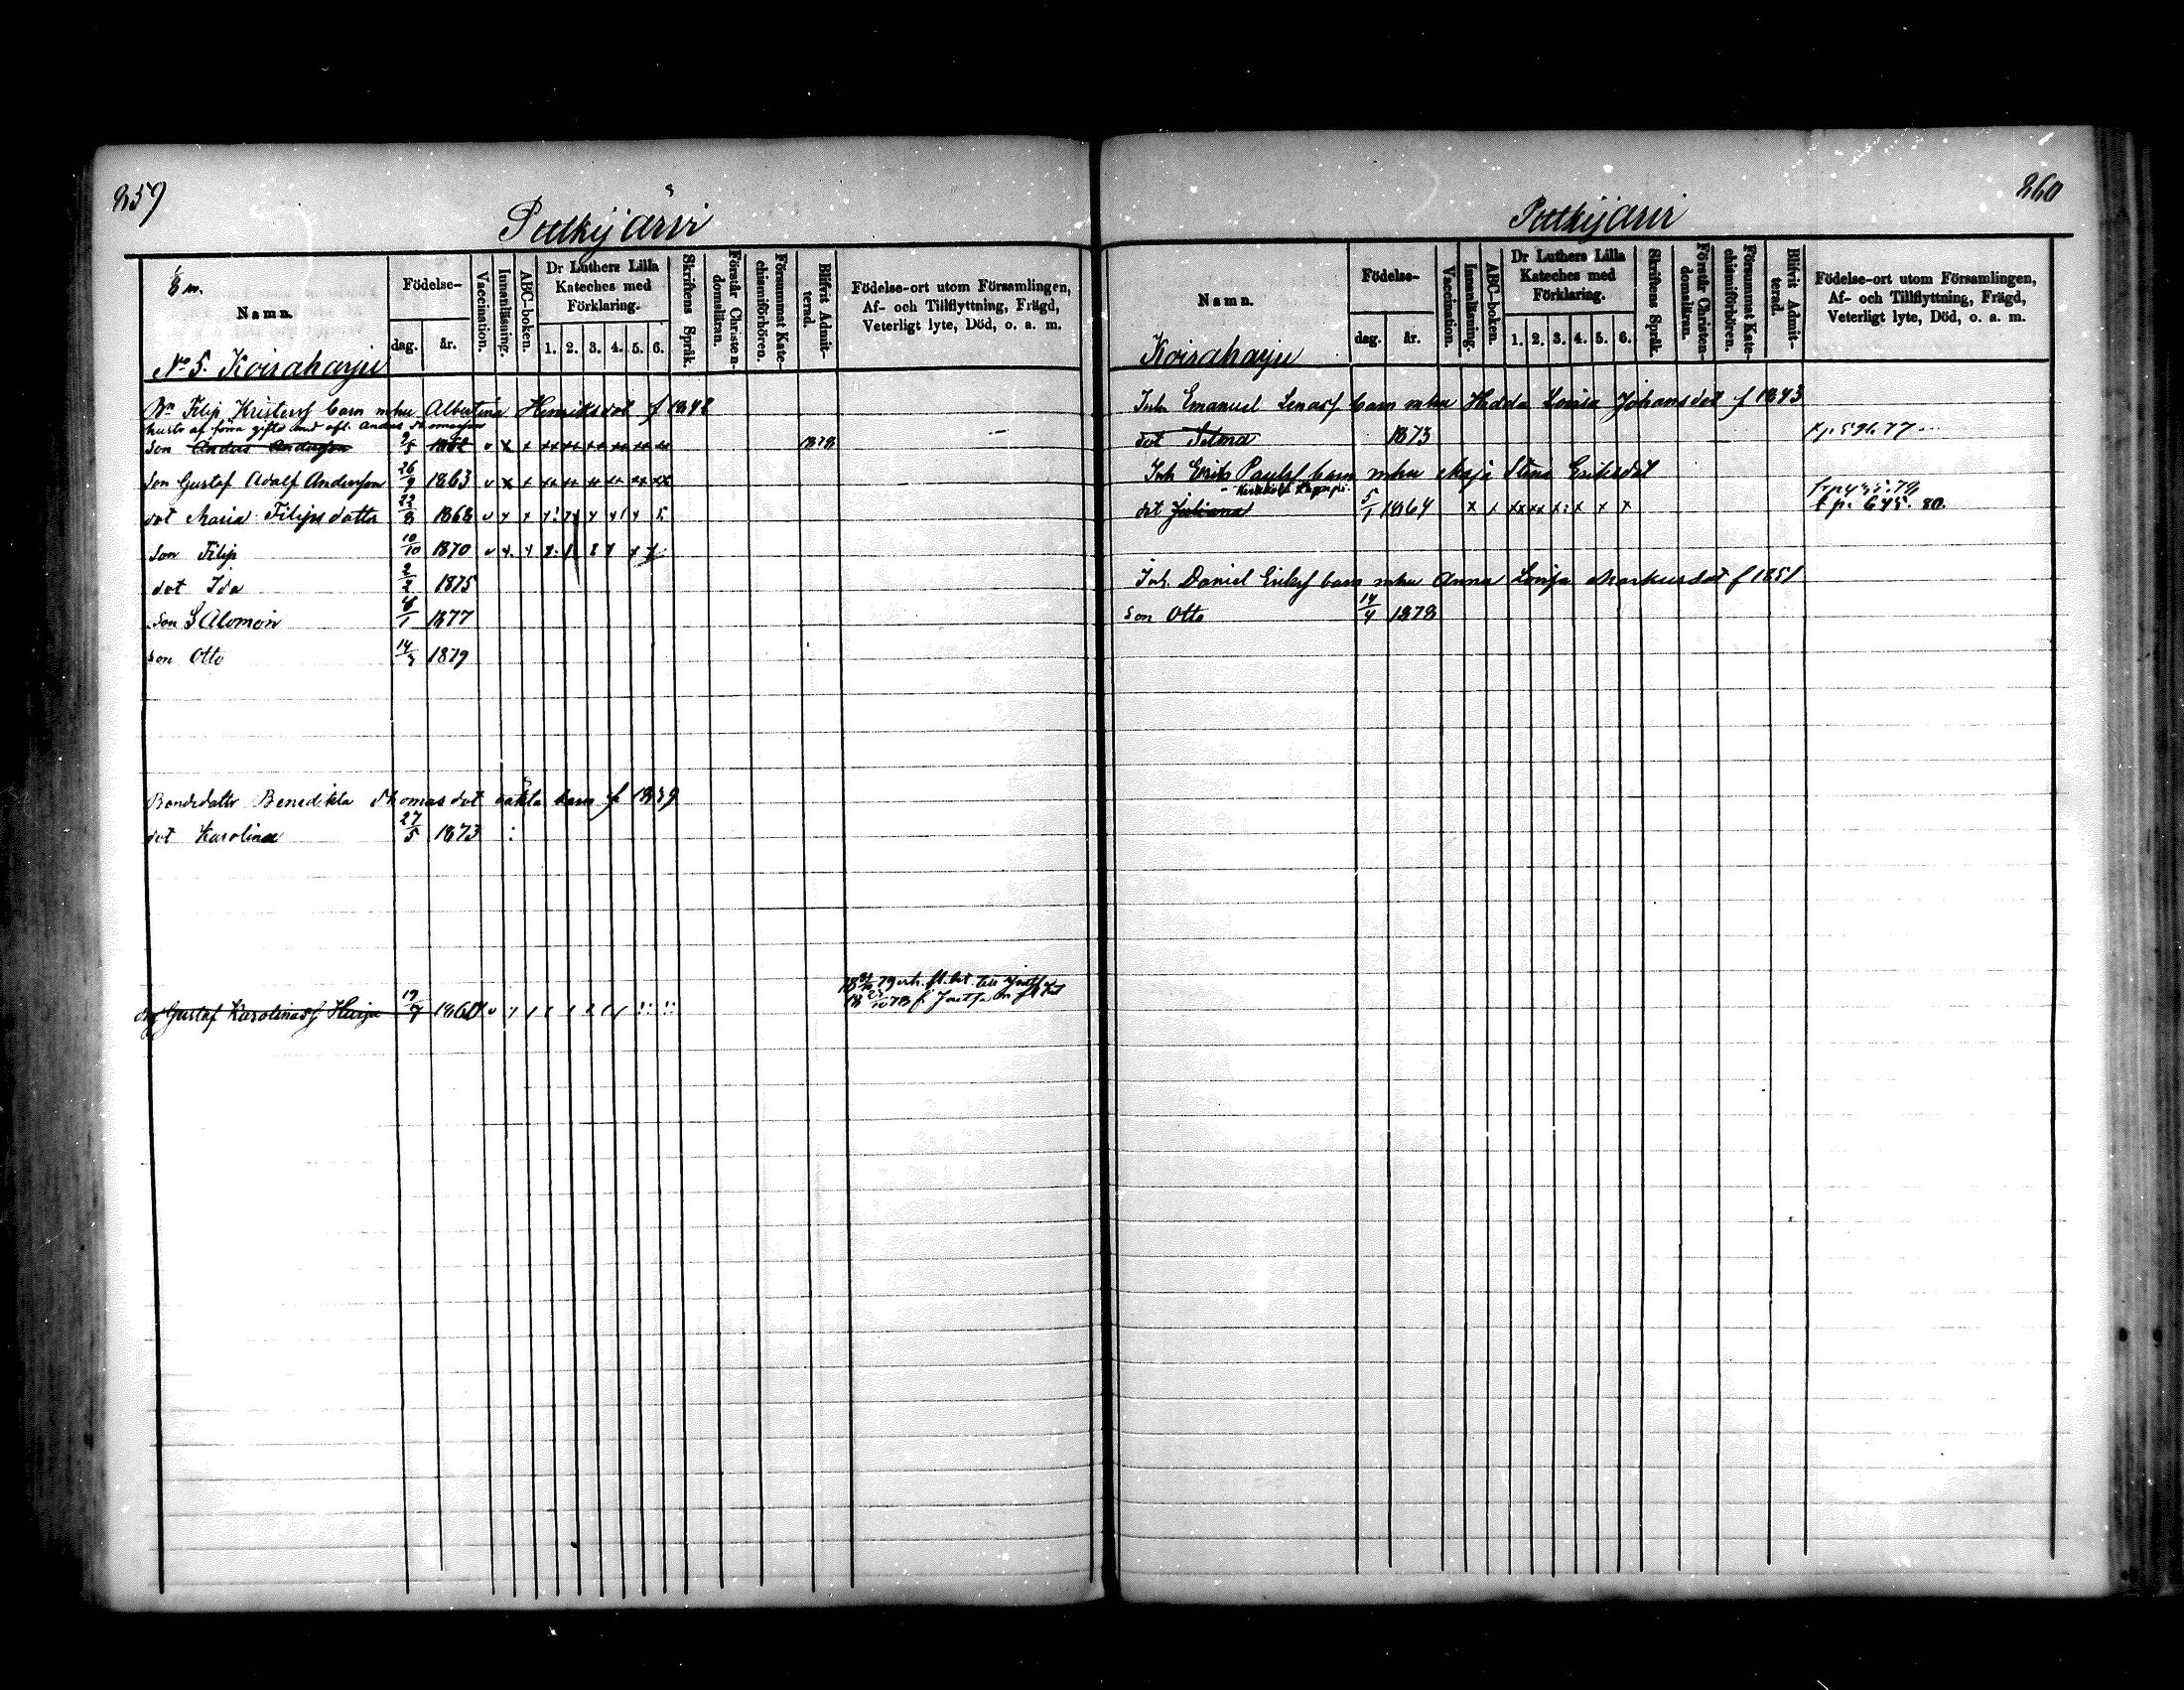 259
Poikijärvi
Em.
Namn.
Födelse-
dag.
år.
Vaccination.
Innanläsning.
ABC-boken.
Dr Luthers Lilla Kateches med Förklaring.
1. 2. 3. 4. 5. 6.
Skriftens Språk.
Förstår Christendomsläran.
Försummat Katechismiförhören.
Blifvit Admitterad.
Födelse-ort utom Församlingen, Af- och Tillflyttning, Frägd, Veterligt lyte, Död, o. a. m.
No 5. Koiraharju
Bn Filip Kristerss barn mhu Albertina Henriksdot f 1842
Son Anders Andersson 2/5 1862 v x x xx xx xx xx xx xx 1878
Son Gustaf Adolf Andersson 26/9 1863 v x x xx xx xx xx xx xx
dot Maria Filips dotter 22/8 1868
Son Filip 10/10 1870
dot Ida 2/2 1875
Son SAlomon 1877
Son Otto 14/3 1879
Bondedottr Benedikta Thomasdot oäkta barn f 1839
dot Karolina 27/5 1873
Gustaf Karolinass Harju 19/7 1860
260
Poikijärvi
Namn.
Födelse-
dag.
år.
Vaccination.
Innanläsning.
ABC-boken.
Dr Luthers Lilla Kateches med Förklaring.
1. 2. 3. 4. 5. 6.
Skriftens Språk.
Förstår Christendomsläran.
Försummat Katechismiförhören.
Blifvit Admitterad.
Födelse-ort utom Församlingen, Af- och Tillflyttning, Frägd, Veterligt lyte, Död, o. a. m.
Koiraharju
Inh Emanuel Lenass. barn mhu Hedda Lovisa Johansdot f 1843
dot Selma 1873
Inh Eriks Paulss barn mhu Maja Stina Eriksdot
dot Juliana 5/1 1864 x x xx xx x x x x t p. 645. 80.
Inh. Daniel Erikss barn mhu Anna Lovisa Markusdot f 1851
Son Otto 14/4 1878